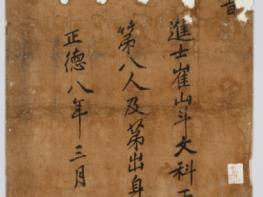 旨
進士崔山斗文科
第八人及第出身
正德八年三月